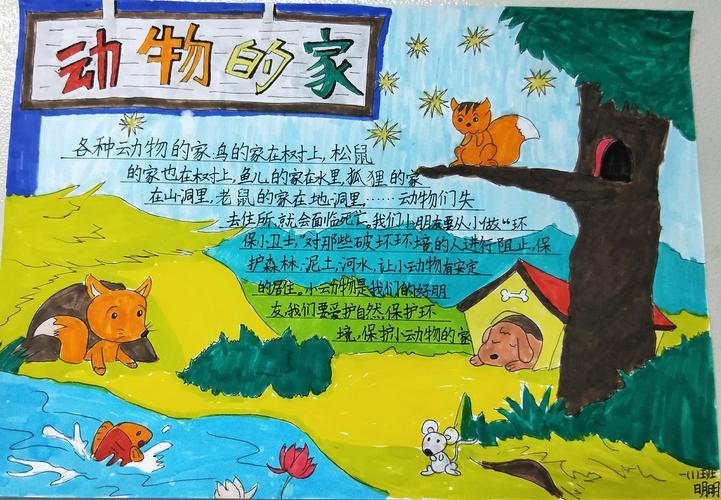 动物的家
各种动物的家.鸟的家在树上,松鼠
的家也在树上,鱼儿的家在水里,狐狸的家
在山洞里,老鼠的家在地洞里,……动物们失
去住所,就会面临死亡。我们小朋友要从小做“环
保小卫士”对那些破坏环境的人进行阻止,保
护森林.泥土,河水,让小动物有安定
的居住。小动物是我们的好朋
友,我们要爱护自然,保护环
境,保护小动物的家
一(1)班
明明